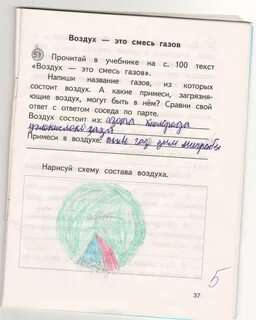 Воздух — это смесь газов
51 Прочитай в учебнике на с. 100 текст
«Воздух — это смесь газов».
Напиши название газов, из которых
состоит воздух. А какие примеси, загрязня-
ющие воздух, могут быть в нём? Сравни свой
ответ с ответом соседа по парте.
Воздух состоит из: азота кислорода
углекислый газа
Примеси в воздухе: пыль газ дым микробы
Нарисуй схему состава воздуха.
5
37